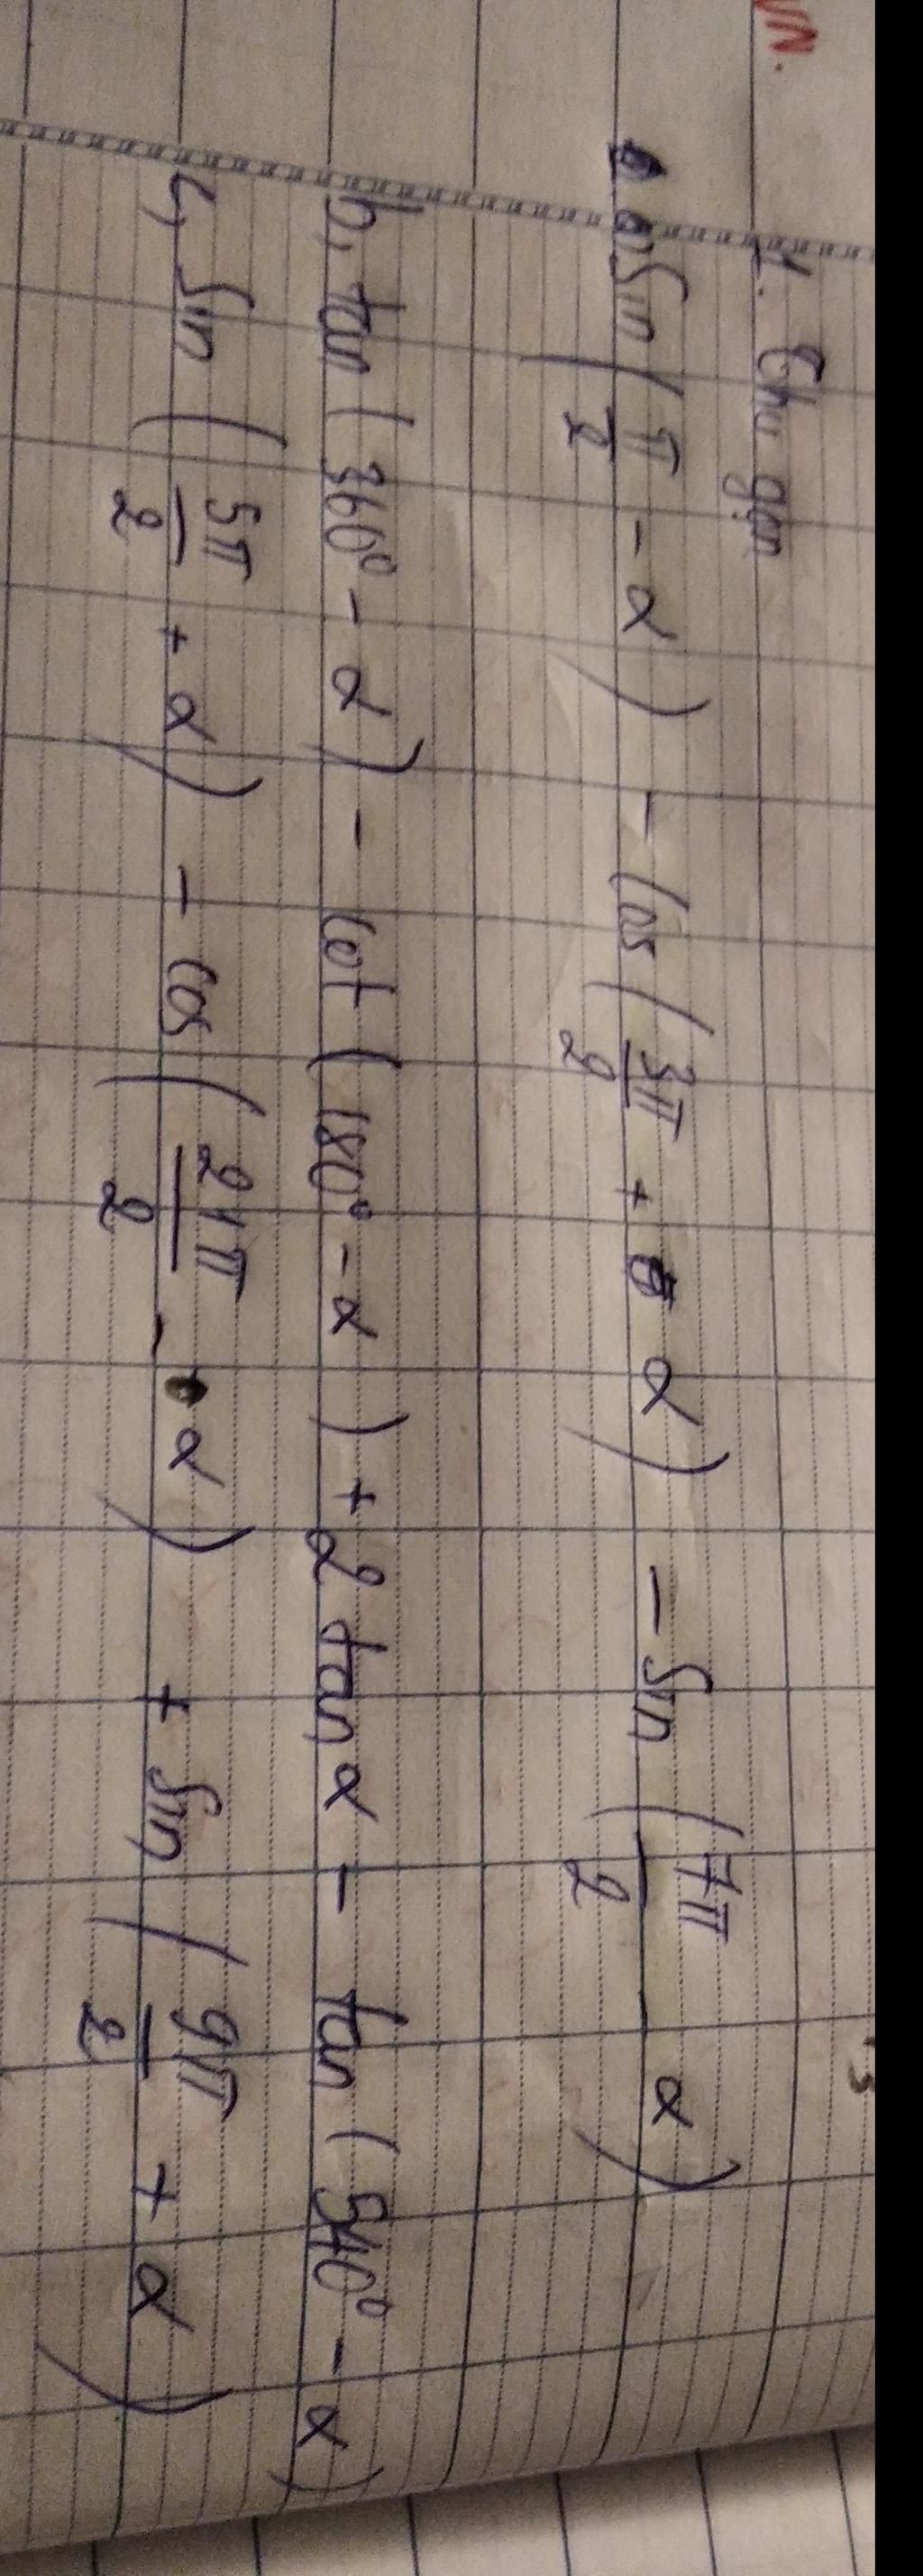 VN.
1. Thu gọn
a, Sin (π/2 - α) - Cos (3π/2 + α) - Sin (7π/2 - α)
b, tan (360° - α) - Cot (180° - α) + 2 tan α - tan (540° - α)
c, Sin (5π/2 + α) - Cos (21π/2 - α) + Sin (9π/2 + α)